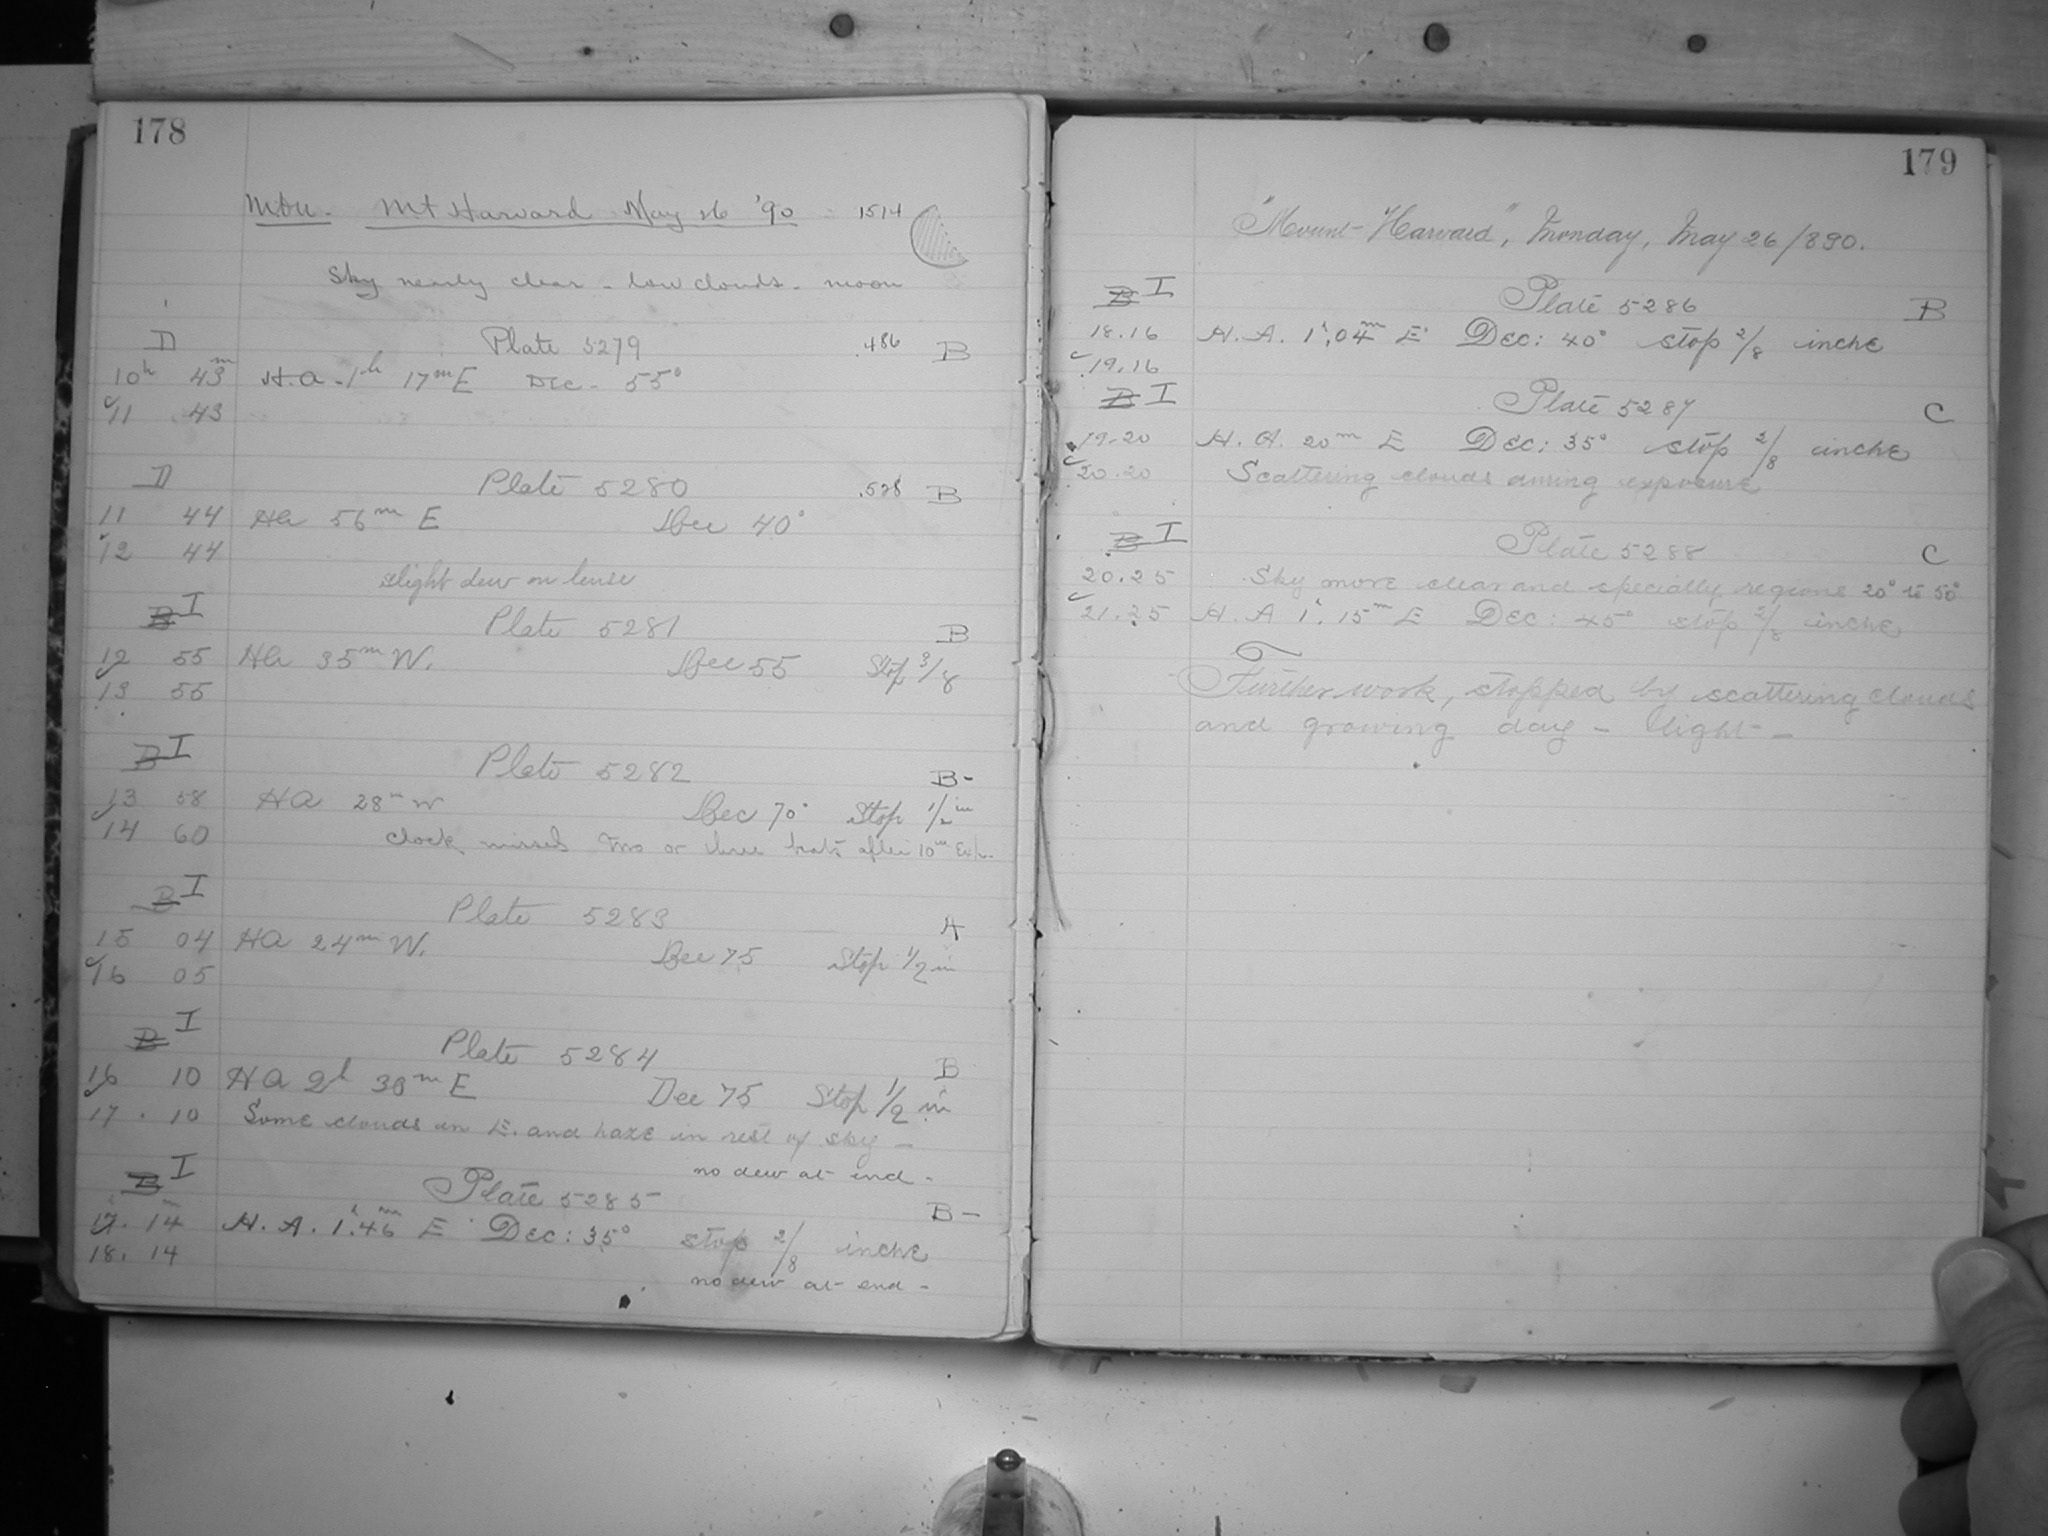 178
Mt Harvard May 26 '90 1514
Sky nearly clear - low clouds - moon
D Plate 5279 .486 B
10h 43m H.A. 1h 17m E Dec - 55°
11 43
D Plate 5280 .528 B
11 44 HA 56m E Dec 40°
12 44
slight dew on lense
B I Plate 5281 B
12 55 HA 35m W. Dec 55 Stop 3/8
13 55
B I Plate 5282 B-
13 58 HA 28m W Dec 70° Stop 1/2 in
14 60 clock missed two or three beats after 10m Exp.
B I Plate 5283 A
15 04 HA 24m W. Dec 75 Stop 1/2 in
16 05
B I Plate 5284 B
16 10 HA 2h 38m E Dec 75 Stop 1/2 in
17 . 10 Some clouds in E. and haze in rest of sky -
no dew at end -
B I Plate 5285 B-
17. 14 H. A. 1h.46m E Dec: 35° stop 2/8 inche
18. 14
no dew at end -
179
"Mount Harvard", Monday, May 26/890.
B I Plate 5286 B
18.16 H. A. 1h.04m E Dec: 40° stop 2/8 inche
19.16
B I Plate 5287 C
19.20 H. A. 20m E Dec: 35° stop 2/8 inche
20.20 Scattering clouds during exposure
B I Plate 5288 C
20.25 Sky more clear and specially regions 20° to 50°
21.25 H. A 1h. 15m E Dec: 45° stop 2/8 inche
Further work, stopped by scattering clouds
and growing day - light -